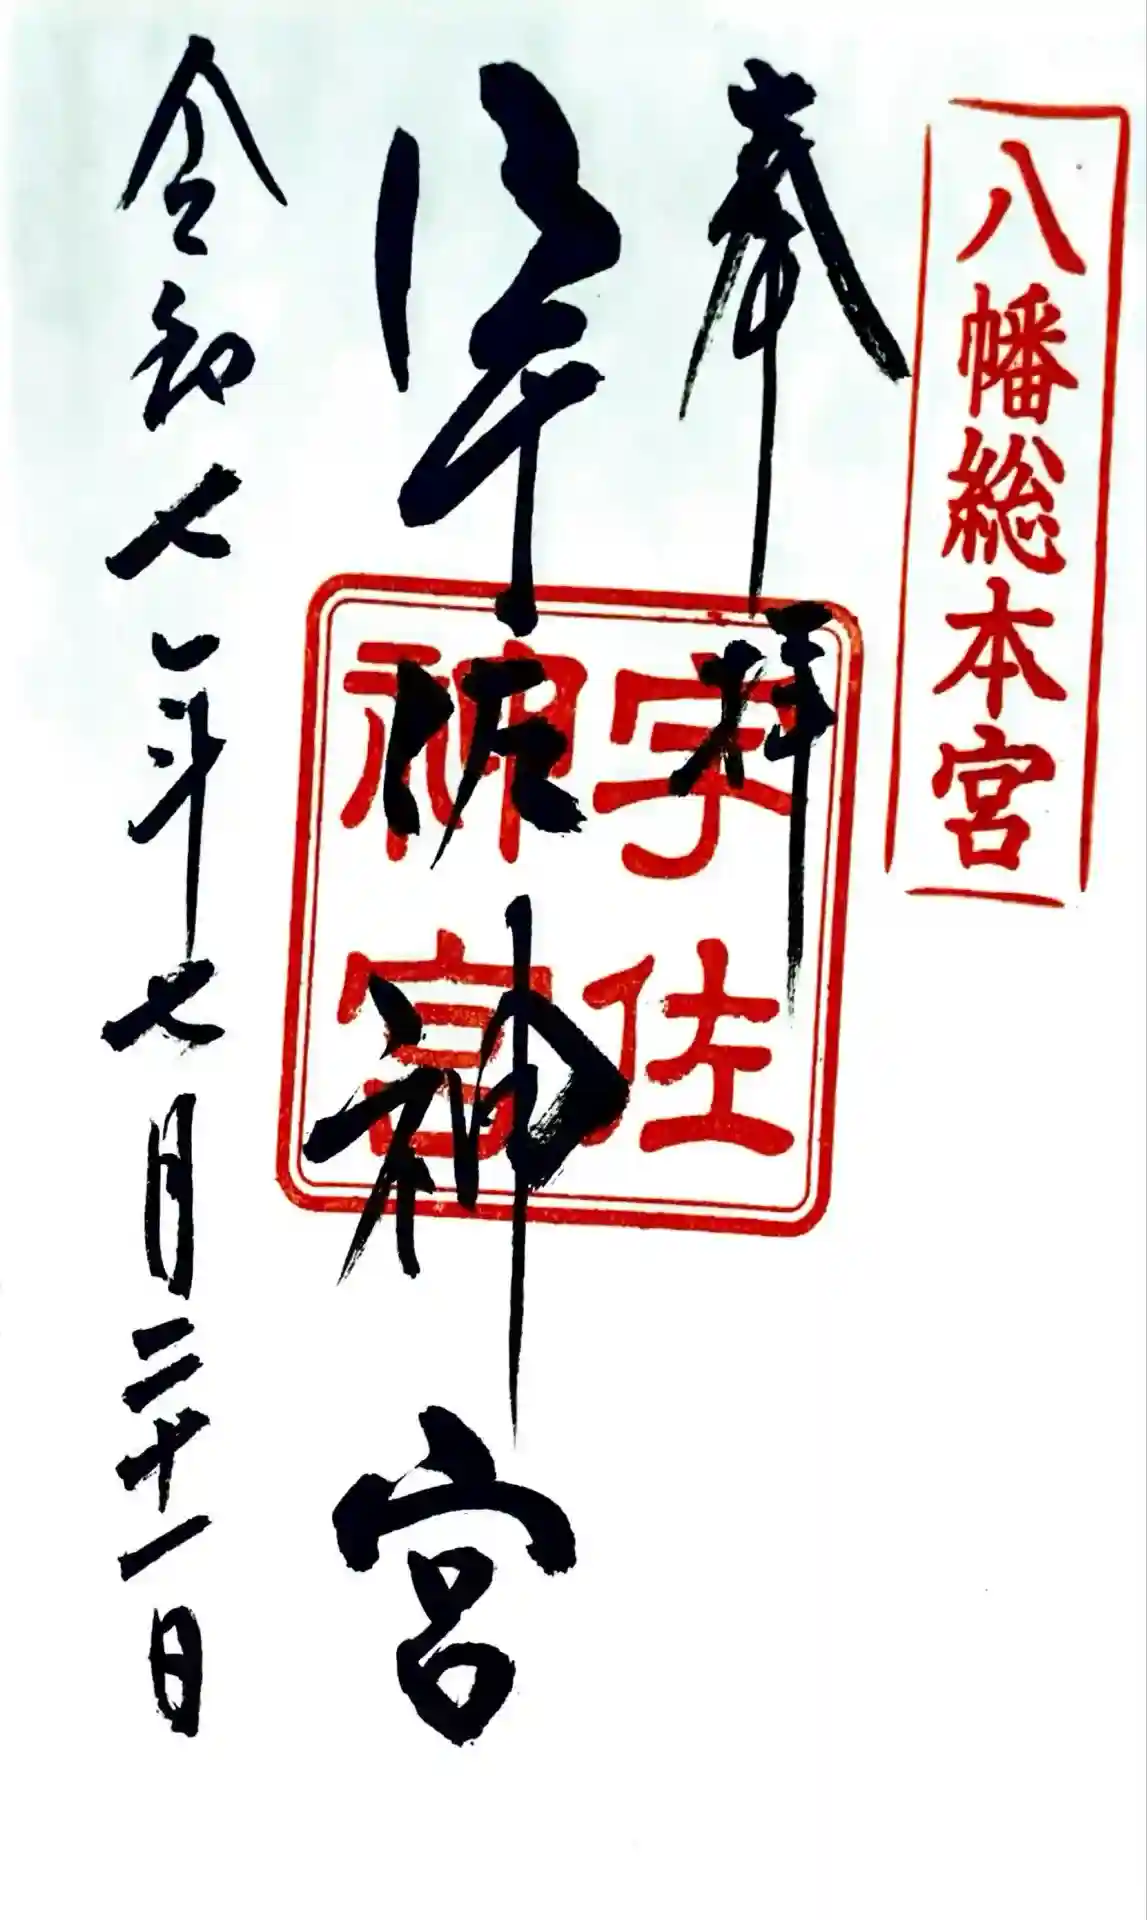 八幡総本宮
奉拝
宇佐神宮
宇佐
神宮
令和七年七月二十一日